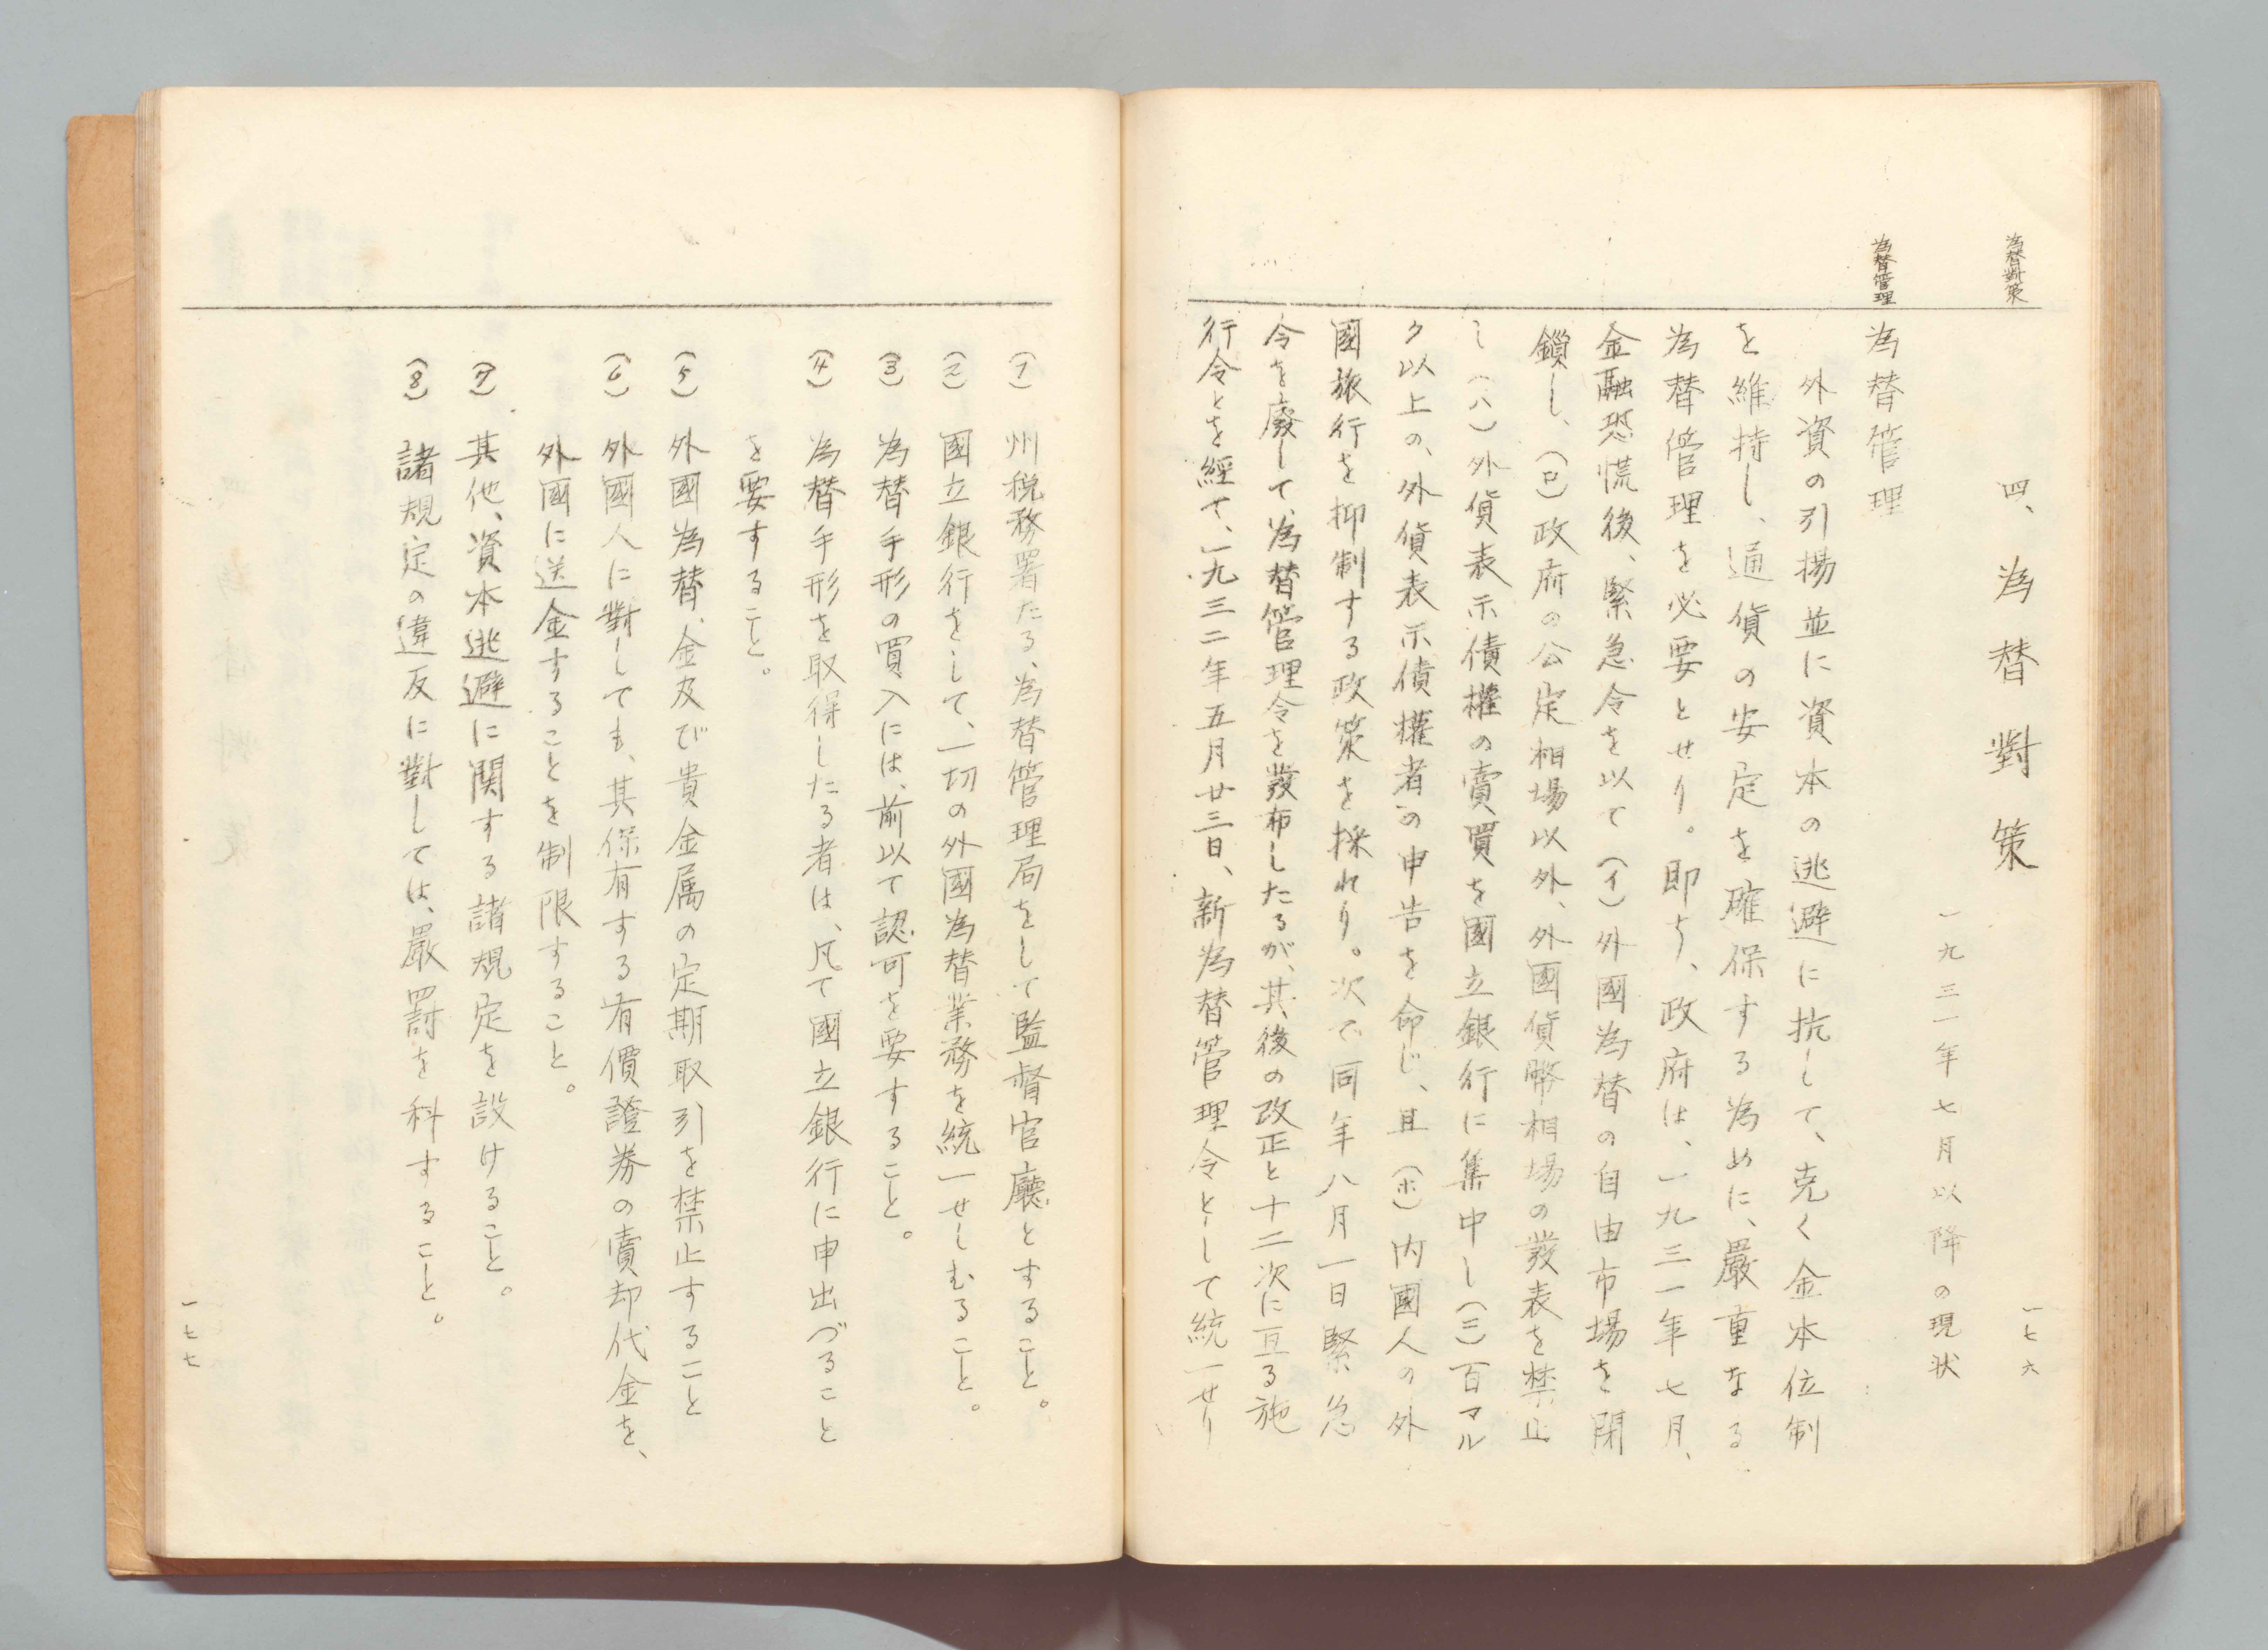 為替對策
一七六
四、為替對策
一九三一年七月以降の現状
為替管理
為替管理
外資の引揚並に資本の逃避に抗して、克く金本位制
を維持し、通貨の安定を確保する為めに、嚴重なる
為替管理を必要とせり。即ち、政府は、一九三一年七月、
金融恐慌後、緊急令を以て(イ)外國為替の自由市場を閉
鎖し、(ロ)政府の公定相場以外、外國貨幣相場の發表を禁止
し(ハ)外貨表示債權の賣買を國立銀行に集中し(ニ)百マル
ク以上の、外貨表示債權者の申告を命じ、且(ホ)内國人の外
國旅行を抑制する政策を採れり。次で同年八月一日緊急
令を廢して、為替管理令を發布したるが、其後の改正と十二次に亘る施
行令とを經て、一九三二年五月廿三日、新為替管理令として統一せり
(1) 州税務署たる、為替管理局をして監督官廳とすること。
(2) 國立銀行をして、一切の外國為替業務を統一せしむること。
(3) 為替手形の買入には、前以て認可を要すること。
(4) 為替手形を取得したる者は、凡て國立銀行に申出づること
を要すること。
(5) 外國為替、金及び貴金属の定期取引を禁止すること
(6) 外國人に對しても、其保有する有價證券の賣却代金を、
外國に送金することを制限すること。
(7) 其他、資本逃避に関する諸規定を設けること。
(8) 諸規定の違反に對しては、嚴罰を科すること。
一七七